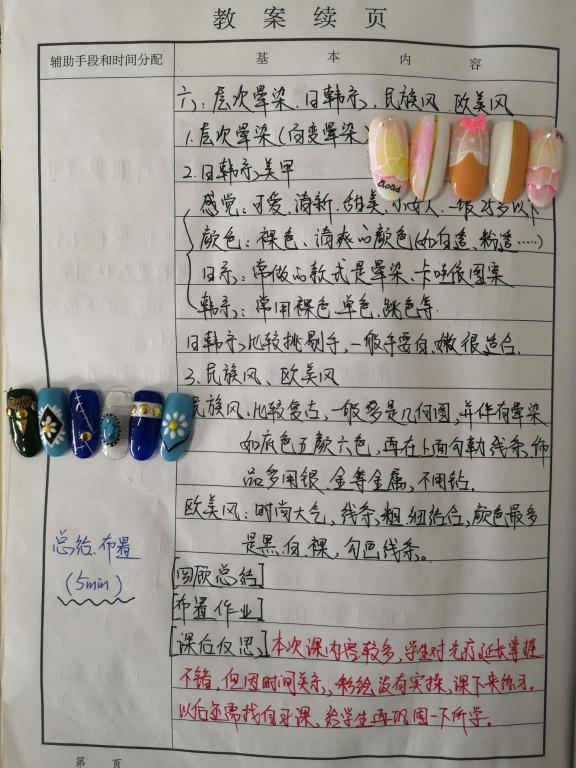 教案续页
辅助手段和时间分配
基本内容
六、层次晕染、日韩系、民族风、欧美风
1.层次晕染(向变晕染)
2.日韩系美甲
感觉:可爱、清新、甜美、小女人、一般
颜色:裸色、清爽的颜色(如白透、粉透……)
日系:常做的款式是晕染、卡哇依图案
韩系:常用裸色、单色、跳色等.
日韩系比较挑剔手,一般手要白、嫩很适合.
3.民族风、欧美风
民族风:比较复古,一般多是几何图,并伴有晕染
如底色五颜六色,再在上面勾勒线条,饰
品多用银、金等金属,不用钻.
欧美风:时尚大气,线条,粗、细结合,颜色最多
是黑、白、裸,勾画线条。
总结、布置
(5min)
[回顾总结]
[布置作业]
[课后反思]本次课内容较多,学生对光疗延长掌握
不错,但因时间关系,彩绘没有实操,课下来练习.
以后还需找自习课,给学生再巩固一下所学.
第 页